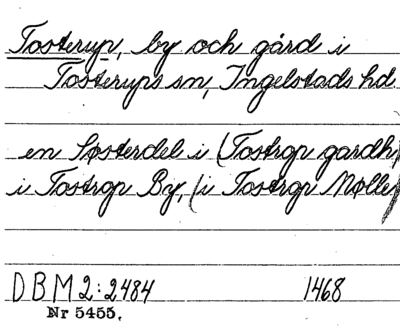 Tosterup, by och gård i
Tosterups sn, Ingelstads hd
en Søsterdel i (Tostrop gardh)
i Tostrop By, (i Tostrop Mølle)
DBM 2:2484 1468
Nr 5455.